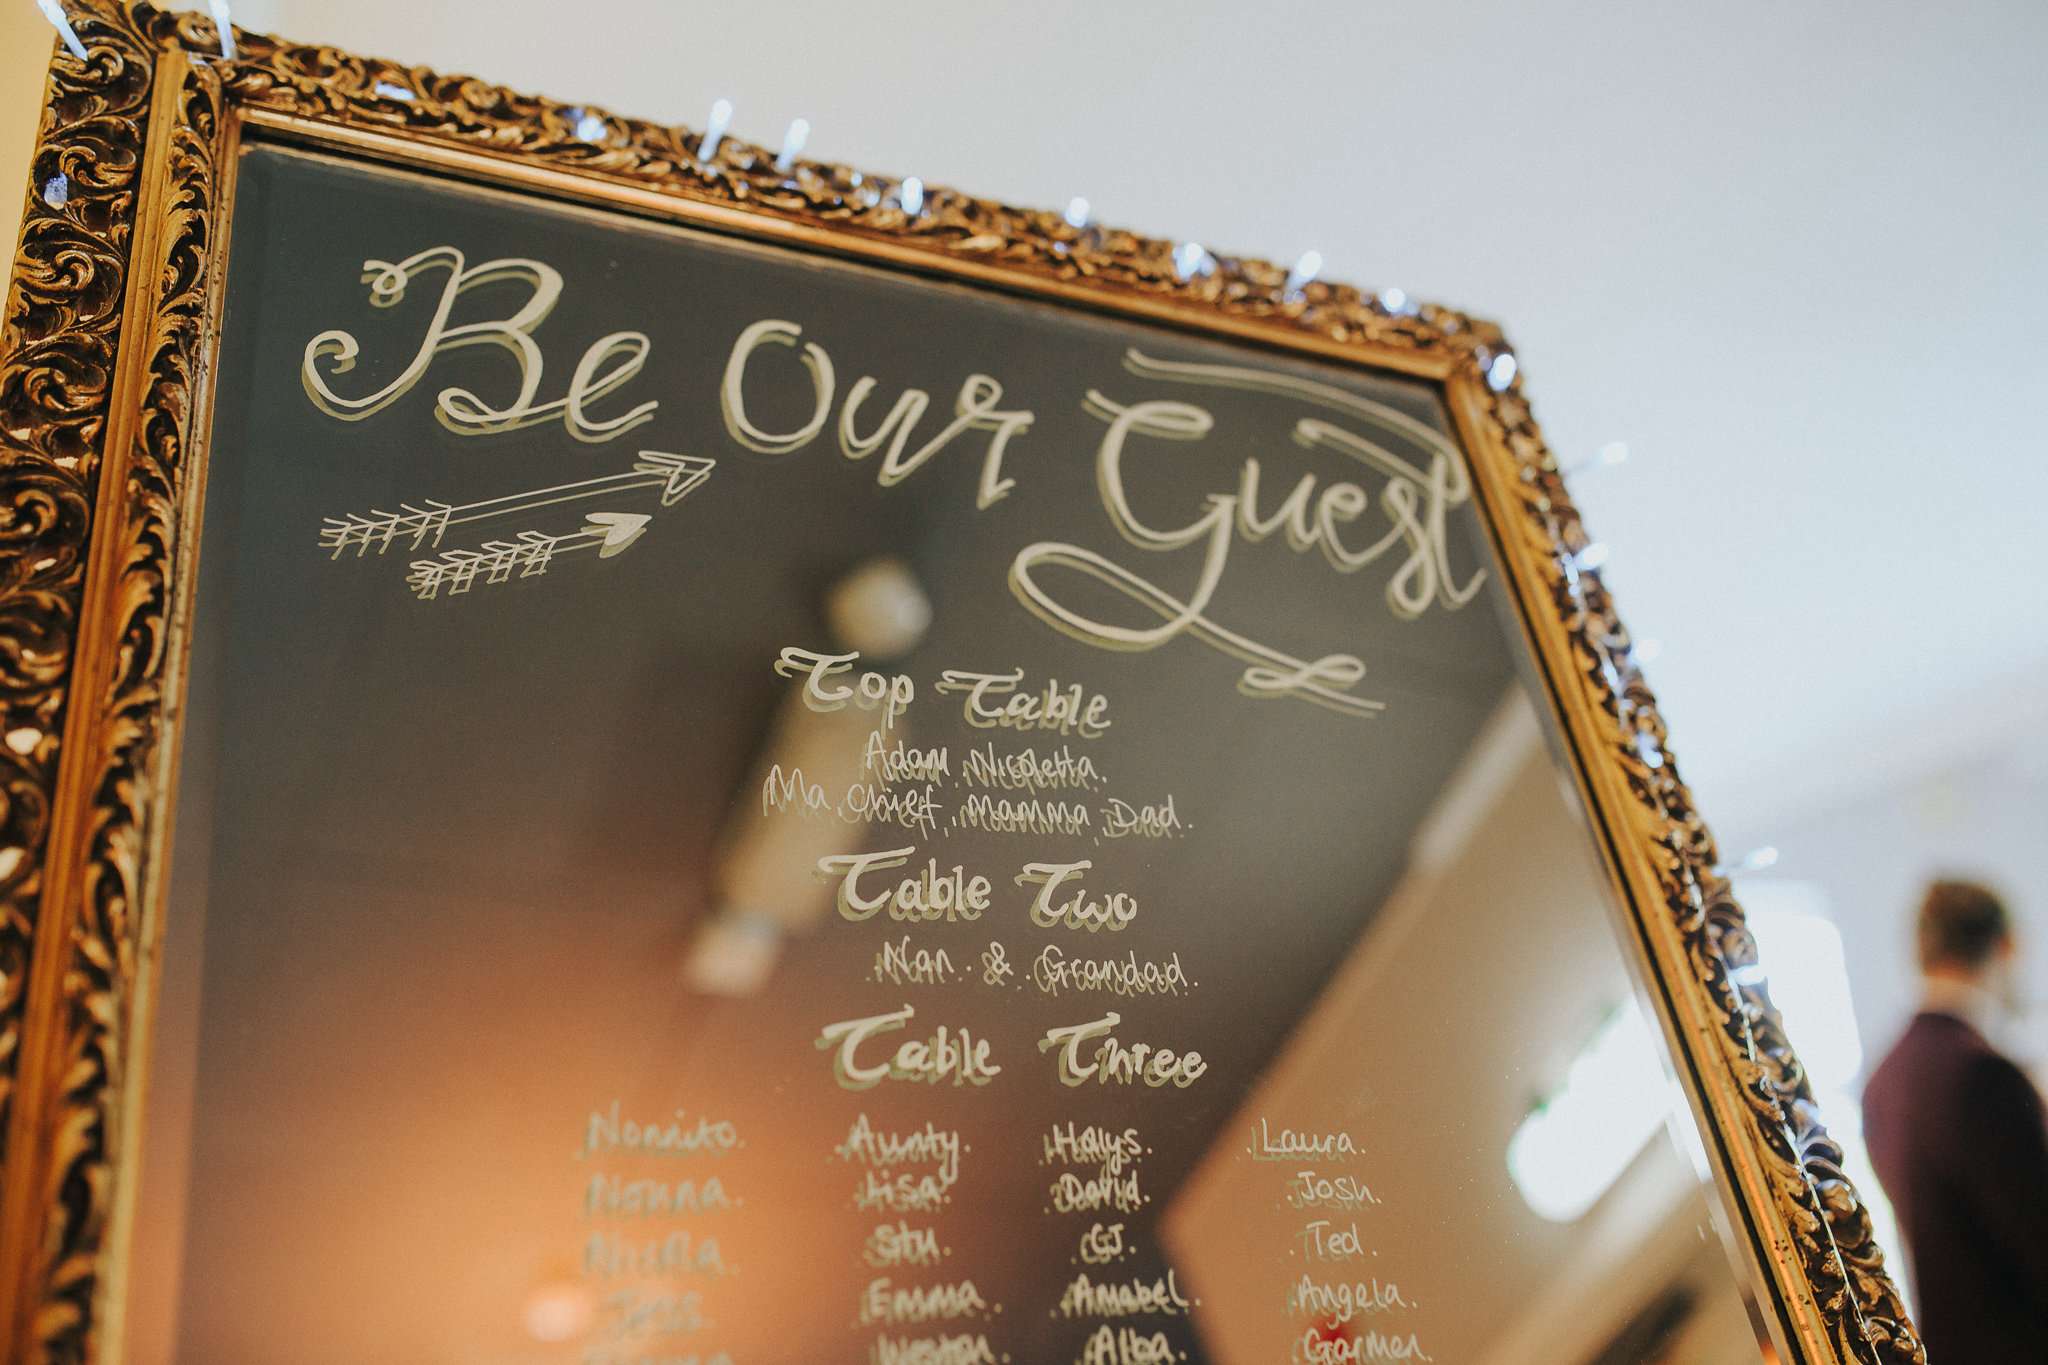 Be Our Guest
Top Table
Adam. Nicoletta.
Ma. Chief. Mamma. Dad.
Table Two
.Nan. & .Grandad.
Table Three
Nonnito. .Aunty. .Halys. .Laura.
Nonna. .Lisa. .David. .Josh.
Nicola. .Stu. .GJ. .Ted.
.Emma. .Annabel. .Angela.
.Weston. .Alba. .Garmen.